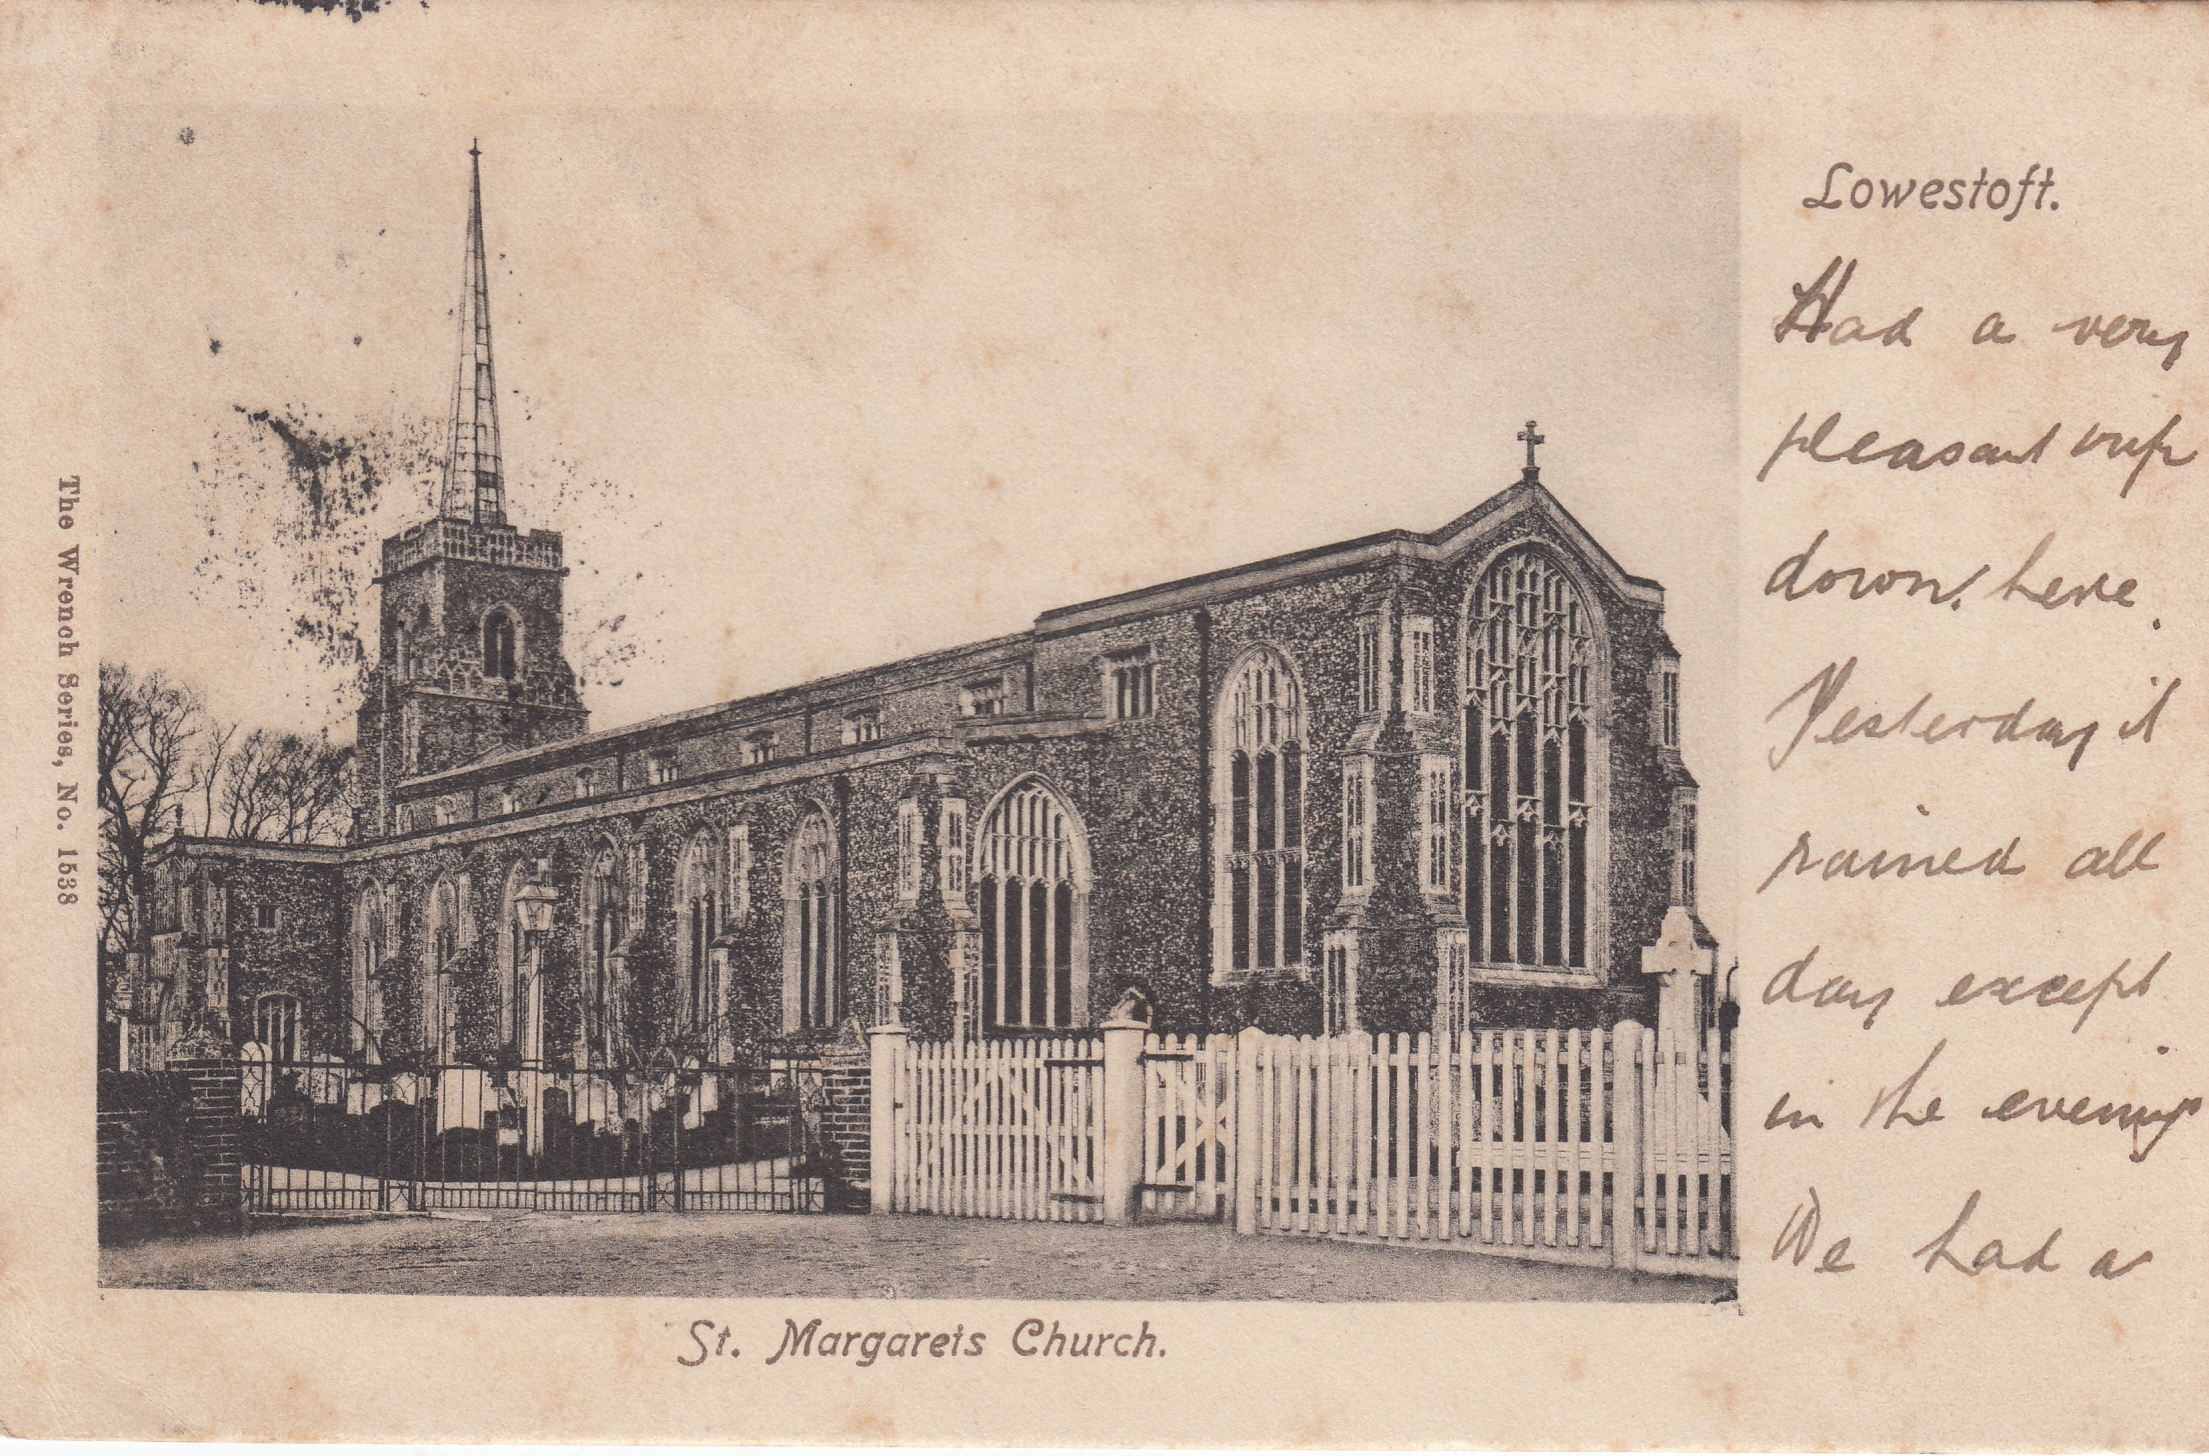 Lowestoft.
Had a very
pleasant trip
down, here.
Yesterday it
rained all
day except
in the evening
We had a
The Wrench Series, No. 1538
St. Margarets Church.